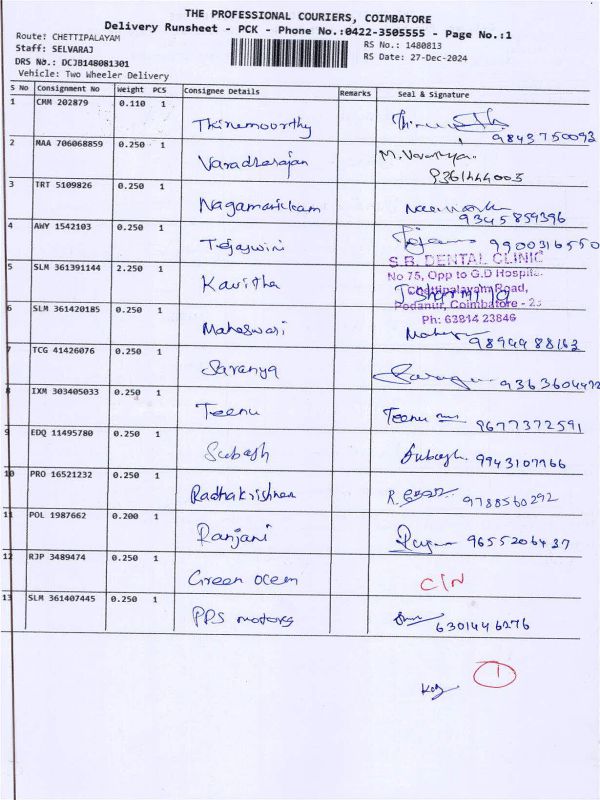 THE PROFESSIONAL COURIERS, COIMBATORE
Delivery Runsheet - PCK - Phone No.:0422-3505555 - Page No.:1
Route: CHETTIPALAYAM
RS No.: 1480813
Staff: SELVARAJ
RS Date: 27-Dec-2024
DRS No.: DCJB148081301
Vehicle: Two Wheeler Delivery
S No Consignment No Weight PCS Consignee Details Remarks Seal & Signature
1 CMM 202879 0.110 1 Thirumoorthy 9843750092
2 MAA 706068859 0.250 1 Varadharajan
9361444003
3 TRT 5109826 0.250 1 Nagamanickam
9345859396
4 AWY 1542103 0.250 1 Tejaswini 9900316550
S.B. DENTAL CLINIC
No 75, Opp to G.D Hospital
Chettipalayam Road,
Podanur, Coimbatore - 23
Ph: 63814 23846
5 SLM 361391144 2.250 1 Kavitha
6 SLM 361420185 0.250 1 Maheswari 9894488163
7 TCG 41426076 0.250 1 Saranya 9363604472
8 IXM 303405033 0.250 1 Teenu Teenu 9677372591
9 EDQ 11495780 0.250 1 Subash Subash 9943107766
10 PRO 16521232 0.250 1 Radhakrishnan 9788560292
11 POL 1987662 0.200 1 Ranjani 9655206437
12 RJP 3489474 0.250 1 Green ocean C/N
13 SLM 361407445 0.250 1 PPS motors 6301446276
1